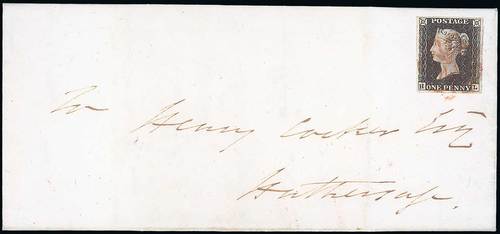 POSTAGE
H L
ONE PENNY
To Henry Cocker Esq
Hathersage.